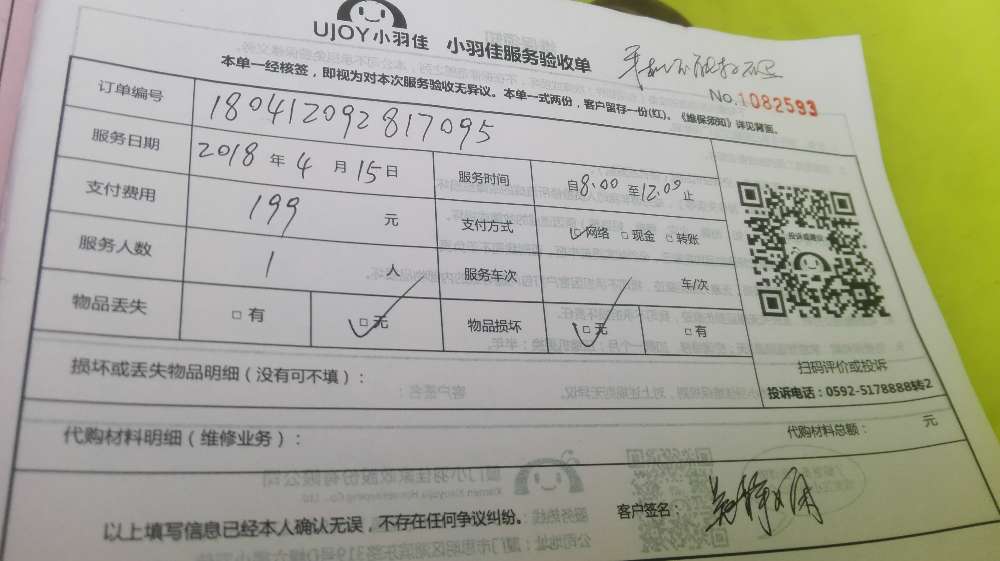 UJOY小羽佳 小羽佳服务验收单 手机不能扫码
No.1082593
本单一经核签，即视为对本次服务验收无异议。本单一式两份，客户留存一份(红)。《维保须知》详见背面。
订单编号 180412092817095
服务日期 2018 年 4 月 15 日 服务时间 自 8:00 至 12:00 止
支付费用 199 元 支付方式 ☑网络 □现金 □转账
服务人数 1 人 服务车次 车/次
物品丢失 □有 ☑无 物品损坏 ☑无 □有
投诉或建议
扫码评价或投诉
投诉电话：0592-5178888转2
损坏或丢失物品明细（没有可不填）：
代购材料明细（维修业务）： 代购材料总额： 元
以上填写信息已经本人确认无误，不存在任何争议纠纷。 客户签名：